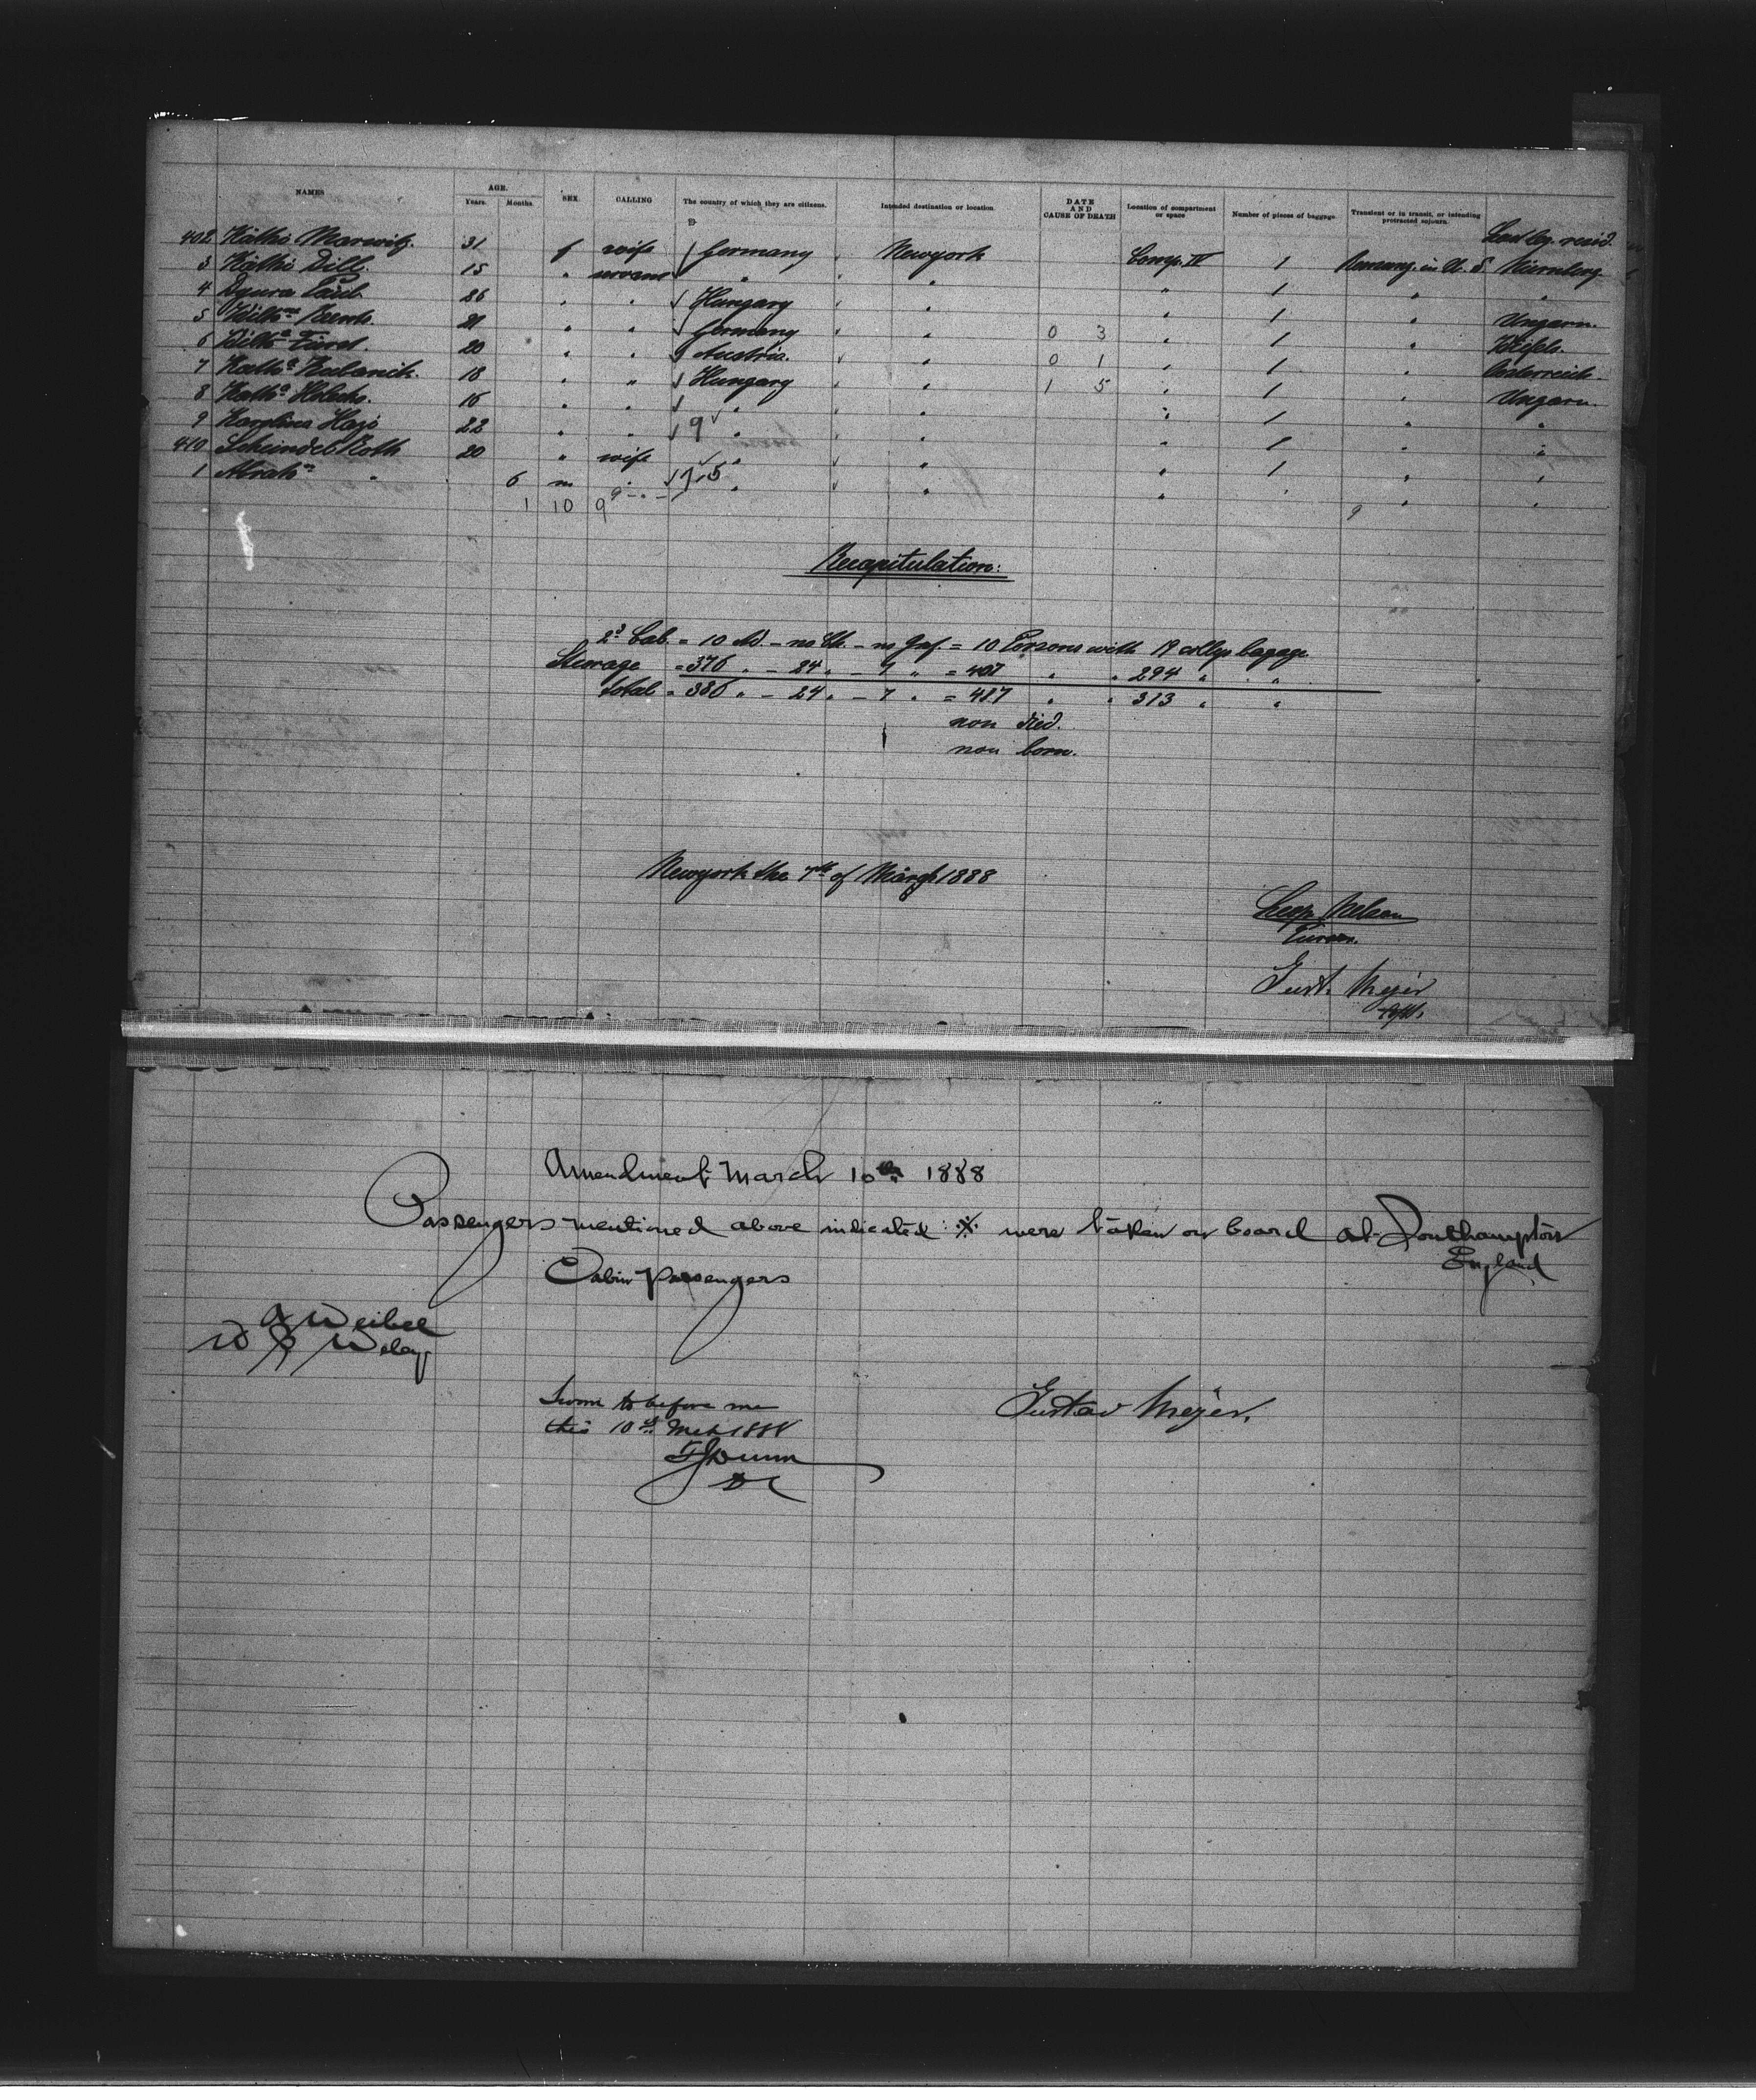 NAMES AGE. Years. Months. SEX. CALLING The country of which they are citizens. Intended destination or location DATE AND CAUSE OF DEATH Location of compartment or space Number of pieces of baggage Transient or in transit, or intending protracted sojourn.
402 Käthi Marwitz. 31 f wife Germany Newyork Comp. IV 1 in U. S. Nürnberg
3 Käthi Dill. 15 " servant " " " 1 " "
4 26 " " Hungary " " 1 " Ungarn.
5 21 " " Germany " 0 3 " 1 "
6 20 " " Austria. " 0 1 " 1 " Oesterreich
7 Kath.a 18 " " Hungary " 1 5 " 1 " Ungarn.
8 Kath.a 16 " " " " " 1 " "
9 Karolina Hazi 22 " " 9 " " " 1 " "
410 Scheindel Roth 20 " wife " " " 1 " "
1 Abrah.m " 6 m " 1 5 " " " " "
1 10 9 9 9
Recapitulation:
2d Cab. = 10 Ad. - no Ch. - no Inf. = 10 Persons with 19 collys bagage
Steerage = 376 " - 24 " - 7 " = 407 " " 294 " "
total = 386 " - 24 " - 7 " = 417 " " 313 " "
non died.
non born.
Newyork the 7th of March 1888
Gust. Mejer
Amendment March 10th 1888
Passengers mentioned above indicated ※ were taken on board at Southampton
England
Cabin Passengers
A Weibel
Sworn to before me
this 10th Mch 1888
Gustav Mejer.